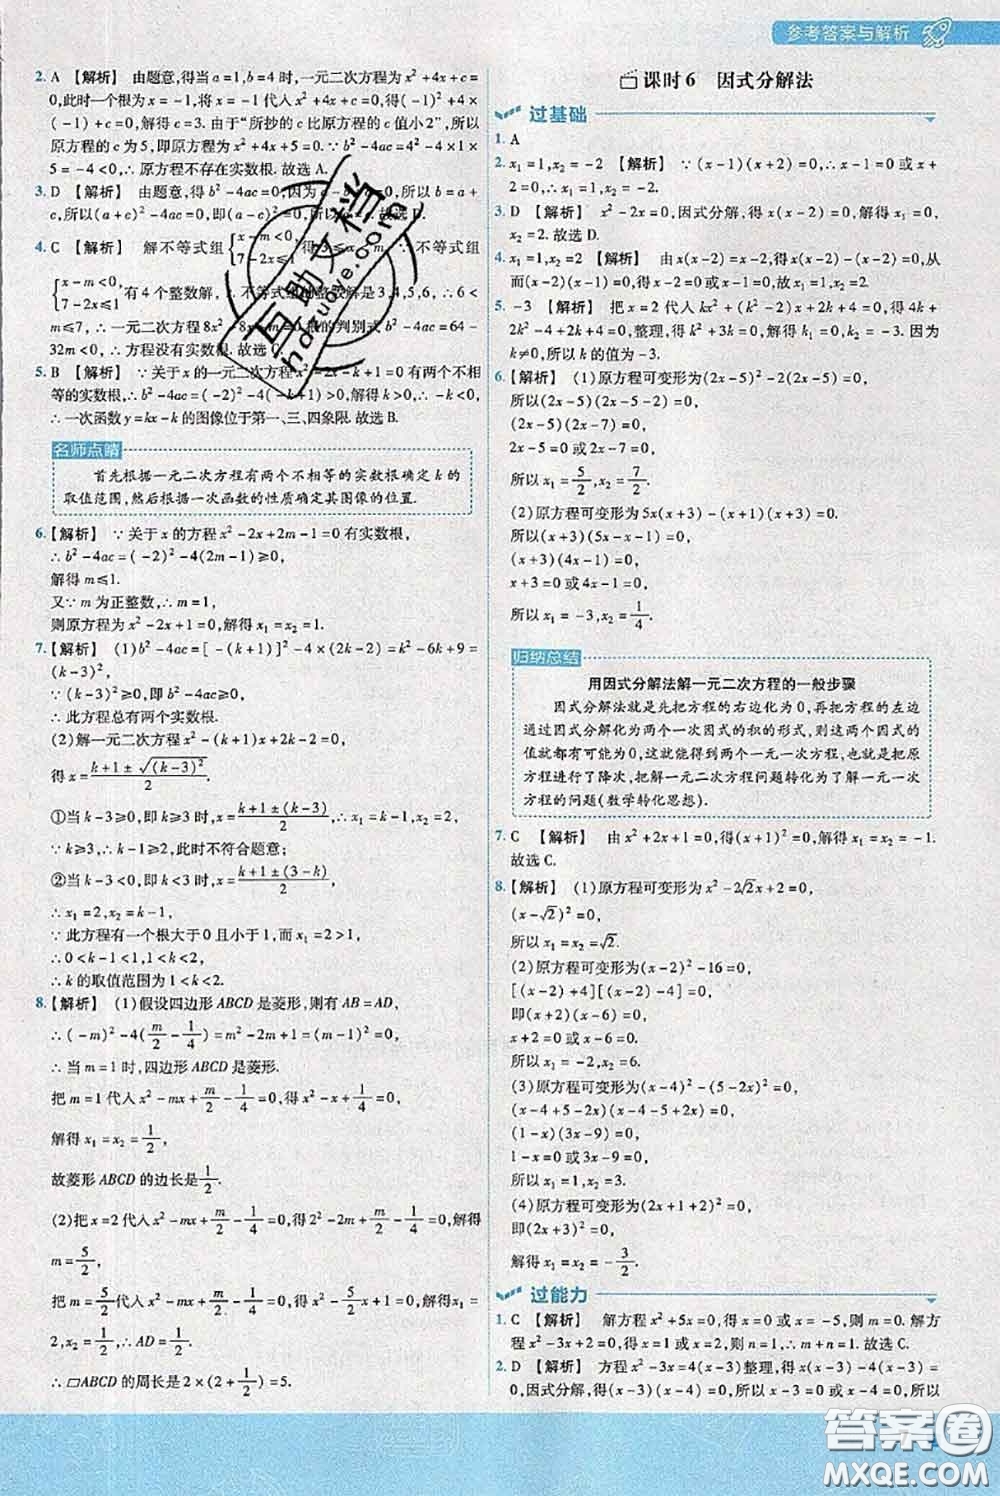 参考答案与解析
2. A 【解析】 由题意,得当 a=1,b=4 时,一元二次方程为 x²+4x+c=
0,此时一个根为 x=-1,将 x=-1 代入 x²+4x+c=0,得(-1)²+4×
(-1)+c=0,解得 c=3. 由于“所抄的 c 比原方程的 c 值小 2”,所以
原方程的 c 为 5,即原方程为 x²+4x+5=0,所以 b²-4ac=4²-4×1×
5=-4<0,∴ 原方程不存在实数根. 故选 A.
3. D 【解析】 由题意,得 b²-4ac=0,因为 所以 b=a+
c,所以(a+c)²-4ac=0,即(a-c)²=0, 故选 D.
4. C 【解析】 解不等式组{x-m<0, 7-2x≤1, 得 3≤x<m. ∵ 不等式组
{x-m<0, 7-2x≤1 有 4 个整数解,∴ 不等式组的整数解为 3,4,5,6,∴ 6<
m≤7,∴ 一元二次方程 8x²-8x+m=0 根的判别式 b²-4ac=64-
32m<0,∴ 方程没有实数根. 故选 C.
5. B 【解析】 ∵ 关于 x 的一元二次方程 x²-2x-k+1=0 有两个不相
等的实数根,∴ b²-4ac=(-2)²-4(-k+1)>0,解得 k>0,
∴ 一次函数 y=kx-k 的图像位于第一、三、四象限. 故选 B.
名师点睛
首先根据一元二次方程有两个不相等的实数根确定 k 的
取值范围,然后根据一次函数的性质确定其图像的位置.
6. 【解析】 ∵ 关于 x 的方程 x²-2x+2m-1=0 有实数根,
∴ b²-4ac=(-2)²-4(2m-1)≥0,
解得 m≤1.
又∵ m 为正整数,∴ m=1,
则原方程为 x²-2x+1=0,解得 x₁=x₂=1.
7. 【解析】 (1)b²-4ac=[-(k+1)]²-4×(2k-2)=k²-6k+9=
(k-3)².
∵ (k-3)²≥0,即 b²-4ac≥0,
∴ 此方程总有两个实数根.
(2)解一元二次方程 x²-(k+1)x+2k-2=0,
得 x=(k+1±√(k-3)²)/2.
①当 k-3≥0,即 k≥3 时,x=(k+1±(k-3))/2,∴ x₁=k-1,x₂=2.
∵ k≥3,∴ k-1≥2,此时不符合题意;
②当 k-3<0,即 k<3 时,x=(k+1±(3-k))/2,
∴ x₁=2,x₂=k-1,
∵ 此方程有一个根大于 0 且小于 1,而 x₁=2>1,
∴ 0<k-1<1,∴ 1<k<2,
∴ k 的取值范围为 1<k<2.
8. 【解析】 (1)假设四边形 ABCD 是菱形,则有 AB=AD,
∴ (-m)²-4(m/2-1/4)=m²-2m+1=(m-1)²=0,
∴ 当 m=1 时,四边形 ABCD 是菱形.
把 m=1 代入 x²-mx+m/2-1/4=0,得 x²-x+1/4=0,
解得 x₁=x₂=1/2,
故菱形 ABCD 的边长是1/2.
(2)把 x=2 代入 x²-mx+m/2-1/4=0,得 2²-2m+m/2-1/4=0,解得
m=5/2,
把 m=5/2代入 x²-mx+m/2-1/4=0,得 x²-5/2x+1=0,解得x₁=
2,x₂=1/2,∴ AD=1/2.
∴ □ABCD 的周长是 2×(2+1/2)=5.
课时 6 因式分解法
过基础
1. A
2. x₁=1,x₂=-2 【解析】 ∵ (x-1)(x+2)=0,∴ x-1=0 或 x+
2=0,∴ x₁=1,x₂=-2.
3. D 【解析】 x²-2x=0,因式分解,得 x(x-2)=0,解得 x₁=0,
x₂=2. 故选 D.
4. x₁=1,x₂=2 【解析】 由 x(x-2)=x-2,得 x(x-2)-(x-2)=0,从
而(x-2)(x-1)=0,∴ x-2=0 或 x-1=0,故 x₁=1,x₂=2.
5. -3 【解析】 把 x=2 代入 kx²+(k²-2)x+2k+4=0,得 4k+
2k²-4+2k+4=0,整理,得 k²+3k=0,解得 k₁=0,k₂=-3. 因为
k≠0,所以 k 的值为 -3.
6. 【解析】 (1)原方程可变形为(2x-5)²-2(2x-5)=0,
所以(2x-5)(2x-5-2)=0,
(2x-5)(2x-7)=0,
2x-5=0 或 2x-7=0,
所以 x₁=5/2,x₂=7/2.
(2)原方程可变形为 5x(x+3)-(x-1)(x+3)=0.
所以(x+3)(5x-x+1)=0,
(x+3)(4x+1)=0,
x+3=0 或 4x+1=0,
所以 x₁=-3,x₂=-1/4.
归纳总结
用因式分解法解一元二次方程的一般步骤
因式分解法就是先把方程的右边化为 0,再把方程的左边
通过因式分解化为两个一次因式的积的形式,则这两个因式的
值就都有可能为 0,这就能得到两个一元一次方程,也就是把原
方程进行了降次,把解一元二次方程问题转化为了解一元一次
方程的问题(数学转化思想).
7. C 【解析】 由 x²+2x+1=0,得(x+1)²=0,解得 x₁=x₂=-1.
故选 C.
8. 【解析】 (1)原方程可变形为 x²-2√2x+2=0,
(x-√2)²=0,
所以 x₁=x₂=√2.
(2)原方程可变形为(x-2)²-16=0,
[(x-2)+4][(x-2)-4]=0,
即(x+2)(x-6)=0,
x+2=0 或 x-6=0,
所以 x₁=-2,x₂=6.
(3)原方程可变形为(x-4)²-(5-2x)²=0,
(x-4+5-2x)(x-4-5+2x)=0,
(1-x)(3x-9)=0,
1-x=0 或 3x-9=0,
所以 x₁=1,x₂=3.
(4)原方程可变形为(2x)²+2×2x×3+3²=0,
即(2x+3)²=0,
解得 x₁=x₂=-3/2.
过能力
1. C 【解析】 解方程 x²+5x=0,得 x=0 或 x=-5,则 m=0. 解方
程 x²-3x+2=0,得 x=1 或 x=2,则 n=1,∴ m+n=1. 故选 C.
2. D 【解析】 方程 x²-3x=4(x-3)整理,得 x(x-3)-4(x-3)=
0,因式分解,得(x-3)(x-4)=0,所以 x-3=0 或 x-4=0,所以
互助文档
hdzuoye.com
答案圈
MXQE.COM